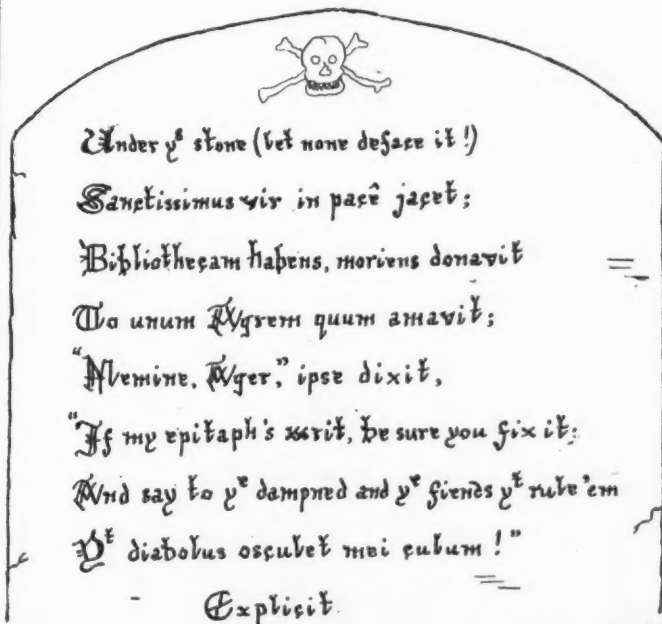 Under yˢ stone (let none deface it!)
Sanctissimus vir in pacê jacet;
Bibliothecam habens, moriens donavit
To unum Agrem quum amavit;
"Memine, Ager," ipse dixit,
"If my epitaph's writ, be sure you fix it;
And say to yᵉ dampned and yᵉ fiends yᵗ rule 'em
Yᵗ diabolus osculet mei culum!"
Explicit